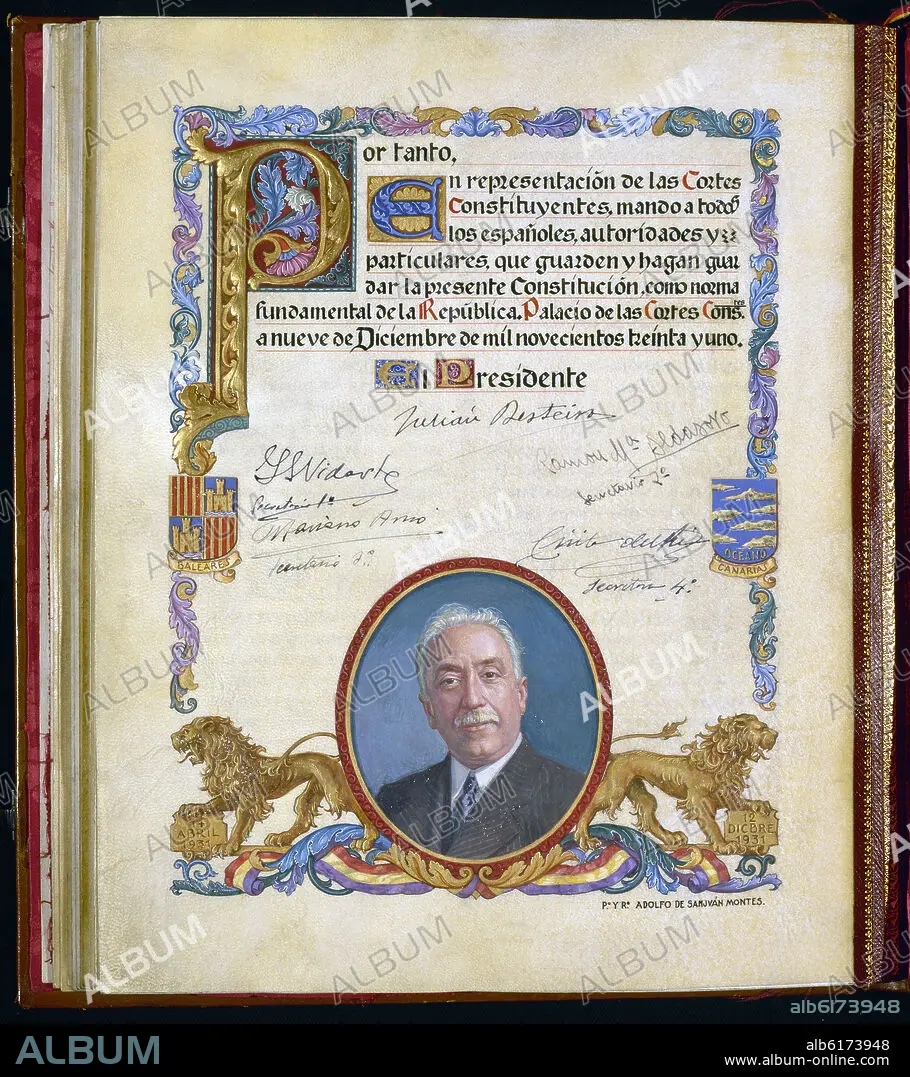 Por tanto,
En representación de las Cortes
Constituyentes, mando a todos
los españoles, autoridades y
particulares, que guarden y hagan guar
dar la presente Constitución, como norma
fundamental de la República. Palacio de las Cortes Constes.
a nueve de Diciembre de mil novecientos treinta y uno.
El Presidente
Julián Besteiro
Ramon Mª Aldasoro
Secretario 2º
JS Vidarte
Secretario 1º
Mariano
Secretario 3º
Secretario 4º
BALEARES
OCEANO
CANARIAS
ABRIL
1931
12
DICBRE
1931
P.º Y R.º ADOLFO DE SANJVÁN MONTES.
ALBUM
alb6173948
ALBUM
alb6173948
www.album-online.com